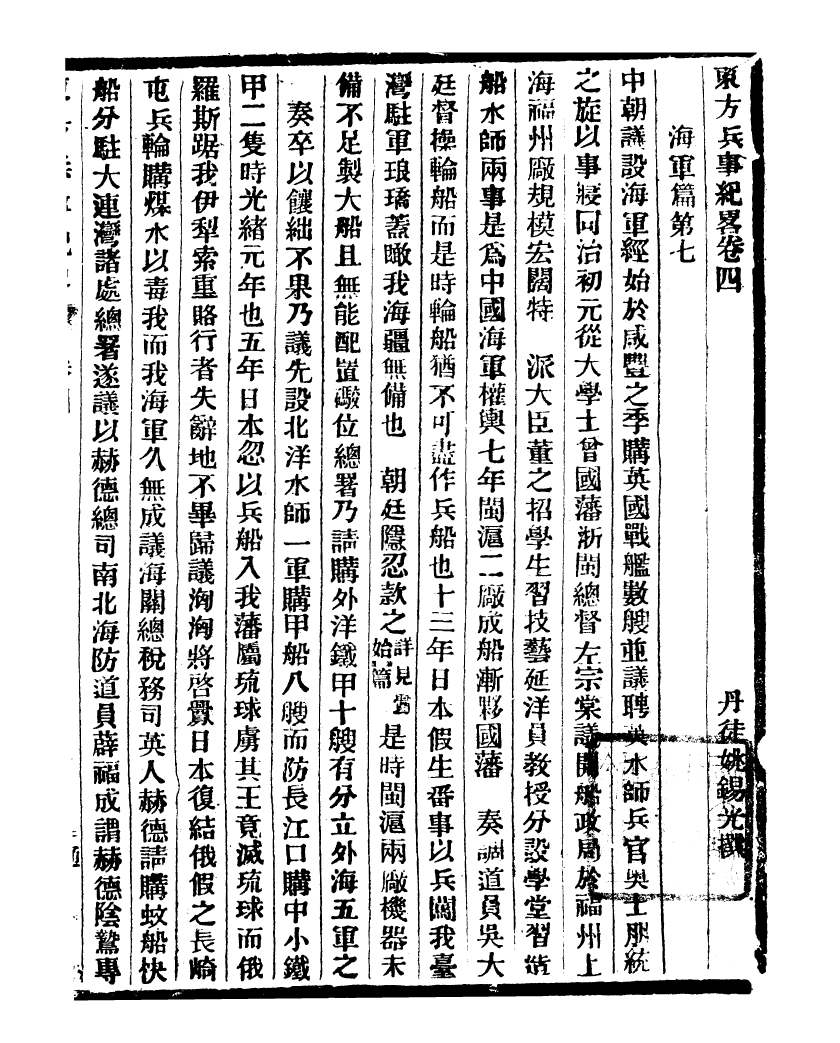 東方兵事紀畧卷四
丹徒姚錫光撰
海軍篇第七
中朝議設海軍經始於咸豐之季購英國戰艦數艘並議聘英水師兵官奧士朋統
之旋以事寢同治初元從大學士曾國藩浙閩總督左宗棠議開船政局於福州上
海福州廠規模宏闊特 派大臣董之招學生習技藝延洋員教授分設學堂習造
船水師兩事是爲中國海軍權輿七年閩滬二廠成船漸夥國藩 奏調道員吳大
廷督操輪船而是時輪船猶不可盡作兵船也十三年日本假生番事以兵闖我臺
灣駐軍琅𤩝蓋瞰我海疆無備也 朝廷隱忍款之詳見臺始篇是時閩滬兩廠機器未
備不足製大船且無能配置礮位總署乃請購外洋鐵甲十艘有分立外海五軍之
奏卒以饟絀不果乃議先設北洋水師一軍購甲船八艘而防長江口購中小鐵
甲二隻時光緒元年也五年日本忽以兵船入我藩屬琉球虜其王竟滅琉球而俄
羅斯踞我伊犁索重賂行者失辭地不畢歸議洶洶將啓釁日本復結俄假之長崎
屯兵輪購煤水以毒我而我海軍久無成議海關總稅務司英人赫德請購蚊船快
船分駐大連灣諸處總署遂議以赫德總司南北海防道員薛福成謂赫德陰鷙專